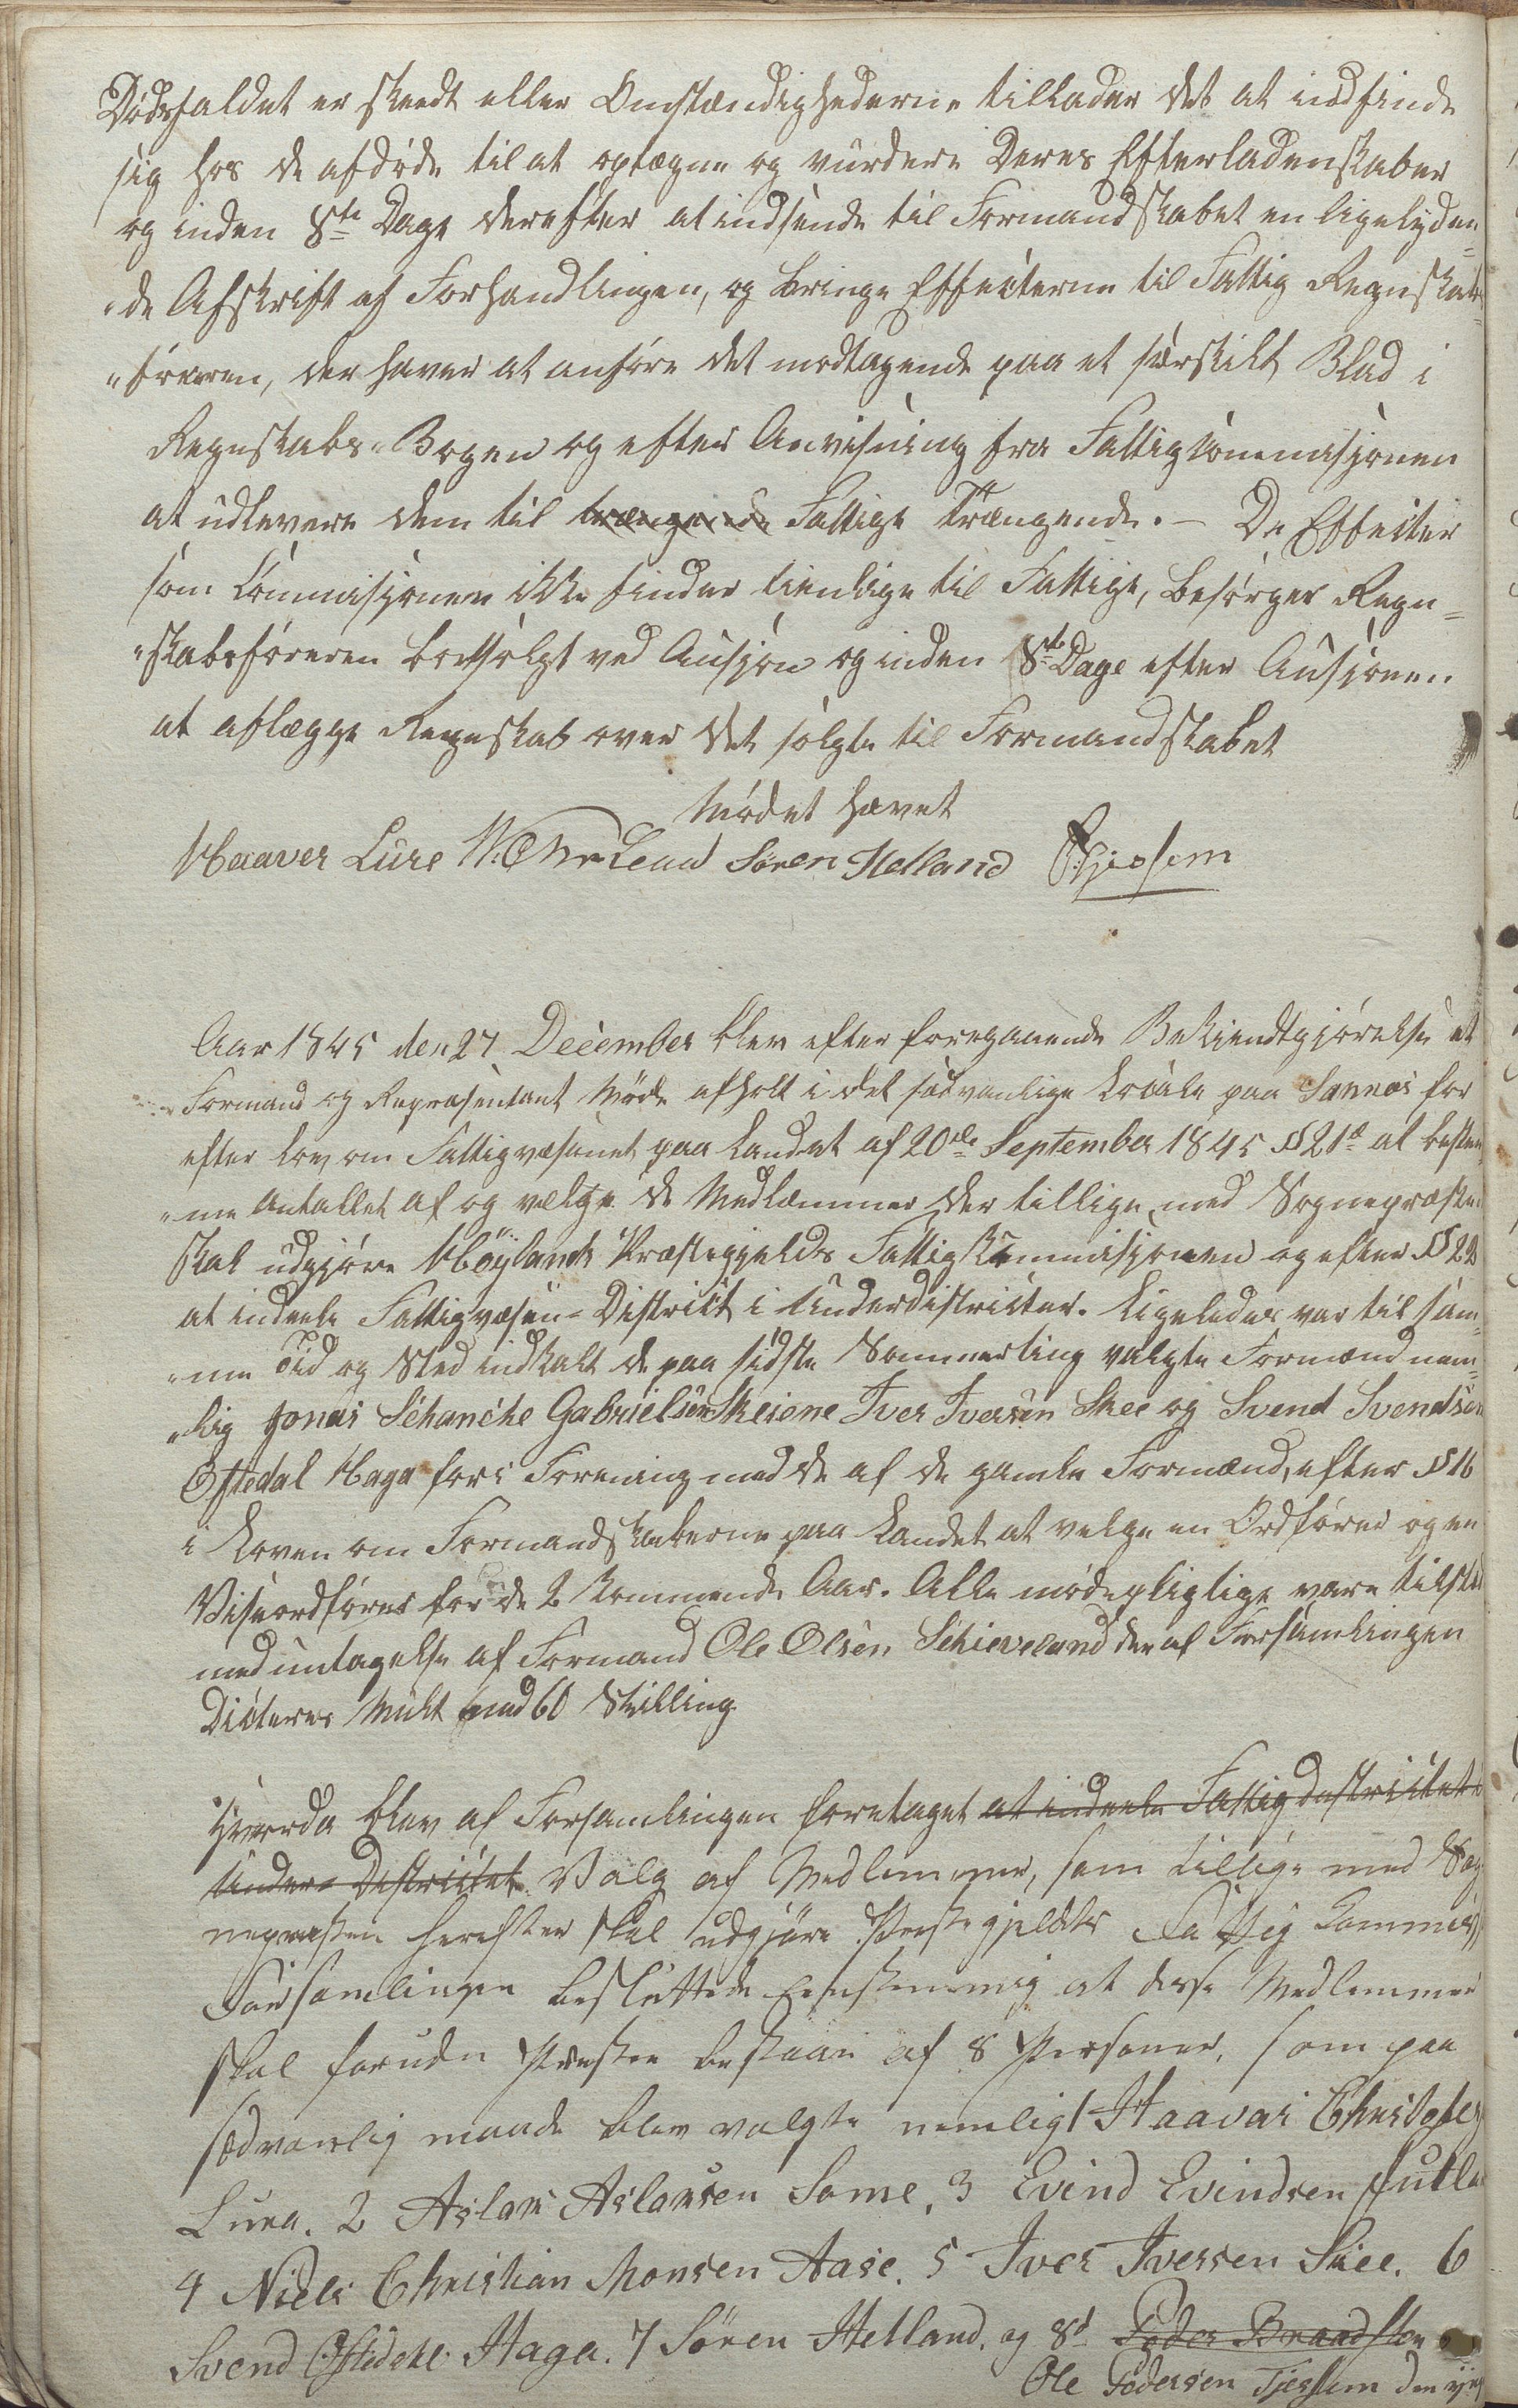 Dødsfaldet er skeedt eller Omstændighederne tillader det at indfinde
sig hos de afdøde til at optægne og vurdere Deres Efterladenskaber
og inden 8te Dage derefter at indsende til Formandskabet en ligelyden=
"de Afskrift af Forhandlingen, og bringe Effecterne til Fattig Regnskabs=
"føreren, der haver at anføre det modtagende paa et særskilt Blad i
Regnskabs-Bogen og efter Anvisning fra Fattigcommisjonen
at udlevere dem til trængende Fattige Trængende. - De Effecter
som Commisjonen ikke finder tienlige til Fattige, besørger Regn=
"skabsføreren bortsolgt ved Ausjon og inden 8te Dage efter Ausjonen
at aflægge Regnskab over det solgte til Formandskabet
Mødet hævet
Haaver Lure Søren Helland
Aar 1845 den 27 December blev efter foregaaende Bekjendtgjørelse et
Formand og Repræsentant Møde afholt i det sædvanlige Locale paa Sannes for
efter Lov om Fattigvæsenet paa Landet af 20de September 1845 §§ 21d at bestem=
"me Antallet af og velge de Medlemmer der tillige med Sognepræsten
skal udgjøre Høylands Præstegjelds Fattigkommisjonen og efter §§ 22
at indeele Fattigvæsen-District i Underdistricter. Ligeledes var til sam=
"me Tid og Sted indkalt de paa sidste Sommerting valgte Formænd nem=
"lig Jonas Schanche Gabrielsen Skeiene Iver Iversen Skee og Svend Svendsen
Oftedal Haga for i Forening med de af de gamle Formænd, efter §§ 16
i Loven om Formandskaberne paa Landet at velge en Ordfører og en
Viseordfører for de 2 kommende Aar. Alle mødepligtige vare tilsted
med untagelse af Formand Ole Olsen Schieveland der af Forsamlingen
Dicteres Mult med 60 Skilling
Hvorda blev af Forsamlingen foretaget at indeele Fattigdestrictet i
Under-Destrictet Valg af Medlemmer, som tillige med Sog
nepræsten herefter skal udgjøre Prestegjeldets Fattig Commis
Forsamlingen besluttede Eenstemmig at disse Medlemmer
skal foruden Presten bestaae af 8 Personer, som paa
sædvanlig maade blev valgte nemlig 1 Haavar Christophers
Lura. 2 Aslak Aslaksen Some, 3 Evind Evindsen
4 Niels Christian Monsen Aase. 5 Iver Iversen Skee. 6
Svend Oftedahl Haga. 7 Søren Helland. og 8d Peder
Ole Pedersen Tjessem den